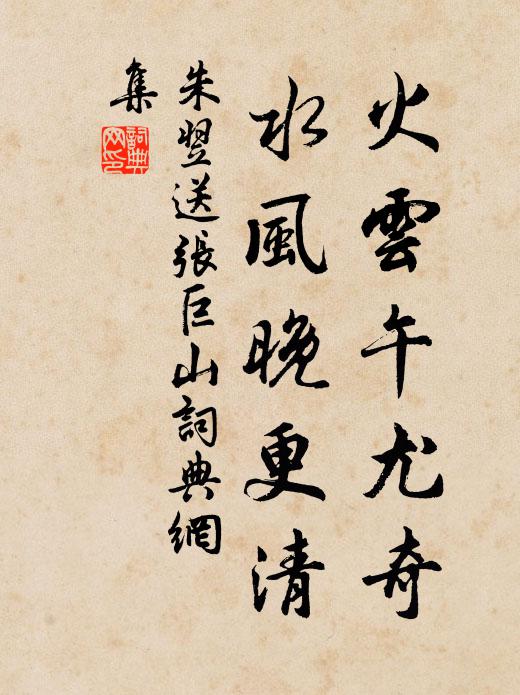 火雲午尤奇
水風晚更清
朱翌送張巨山詞典網
集
詞典网印